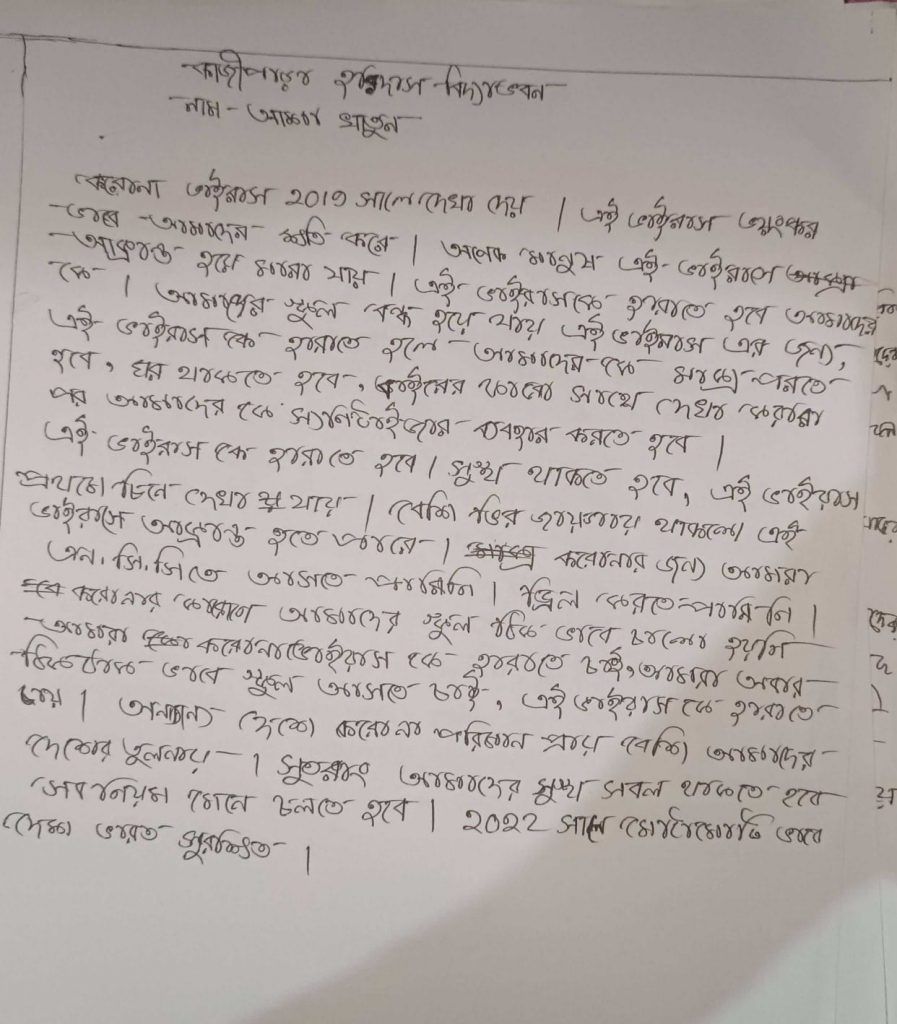 কাজীপাড়া হরিদাস বিদ্যাভবন
নাম - আসমা খাতুন
করোনা ভাইরাস 2019 সালে দেখা দেয় | এই ভাইরাস ভয়ংকর
ভাবে আমাদের ক্ষতি করে | অনেক মানুষ এই ভাইরাসে
আক্রান্ত হয়ে মারা যায় | এই ভাইরাসকে হারাতে হবে আমাদের
কে | আমাদের স্কুল বন্ধ হয়ে যায় এই ভাইরাস এর জন্য,
এই ভাইরাস কে হারাতে হলে আমাদের কে মাস্ক পরতে
হবে, ঘরে থাকতে হবে, বাইরের কারো সাথে দেখা করার
পর আমাদের কে স্যানিটাইজার ব্যবহার করতে হবে |
এই ভাইরাস কে হারাতে হবে | সুস্থ থাকতে হবে, এই ভাইরাস
প্রথমে চিনে দেখা যায় | বেশি ভিড় জায়গায় থাকলে এই
ভাইরাসে আক্রান্ত হতে পারে | করোনার জন্য আমরা
এন. সি. সিতে আসতে পারিনি | ড্রিল করতে পারিনি |
করোনার কারণে আমাদের স্কুল ঠিক ভাবে চালো হয়নি
আমরা করোনা ভাইরাস কে হারাতে চাই, আমরা আবার
ঠিকঠাক ভাবে স্কুলে আসতে চাই, এই ভাইরাস কে হারাতে
চায় | অন্যান্য দেশে করোনা পরিমান প্রায় বেশি আমাদের
দেশের তুলনায় | সুতরাং আমাদের সুস্থ সবল থাকতে হবে
সব নিয়ম মেনে চলতে হবে | 2022 সালে মোটামোটি ভাবে
দেশ ভারত সুরক্ষিত |